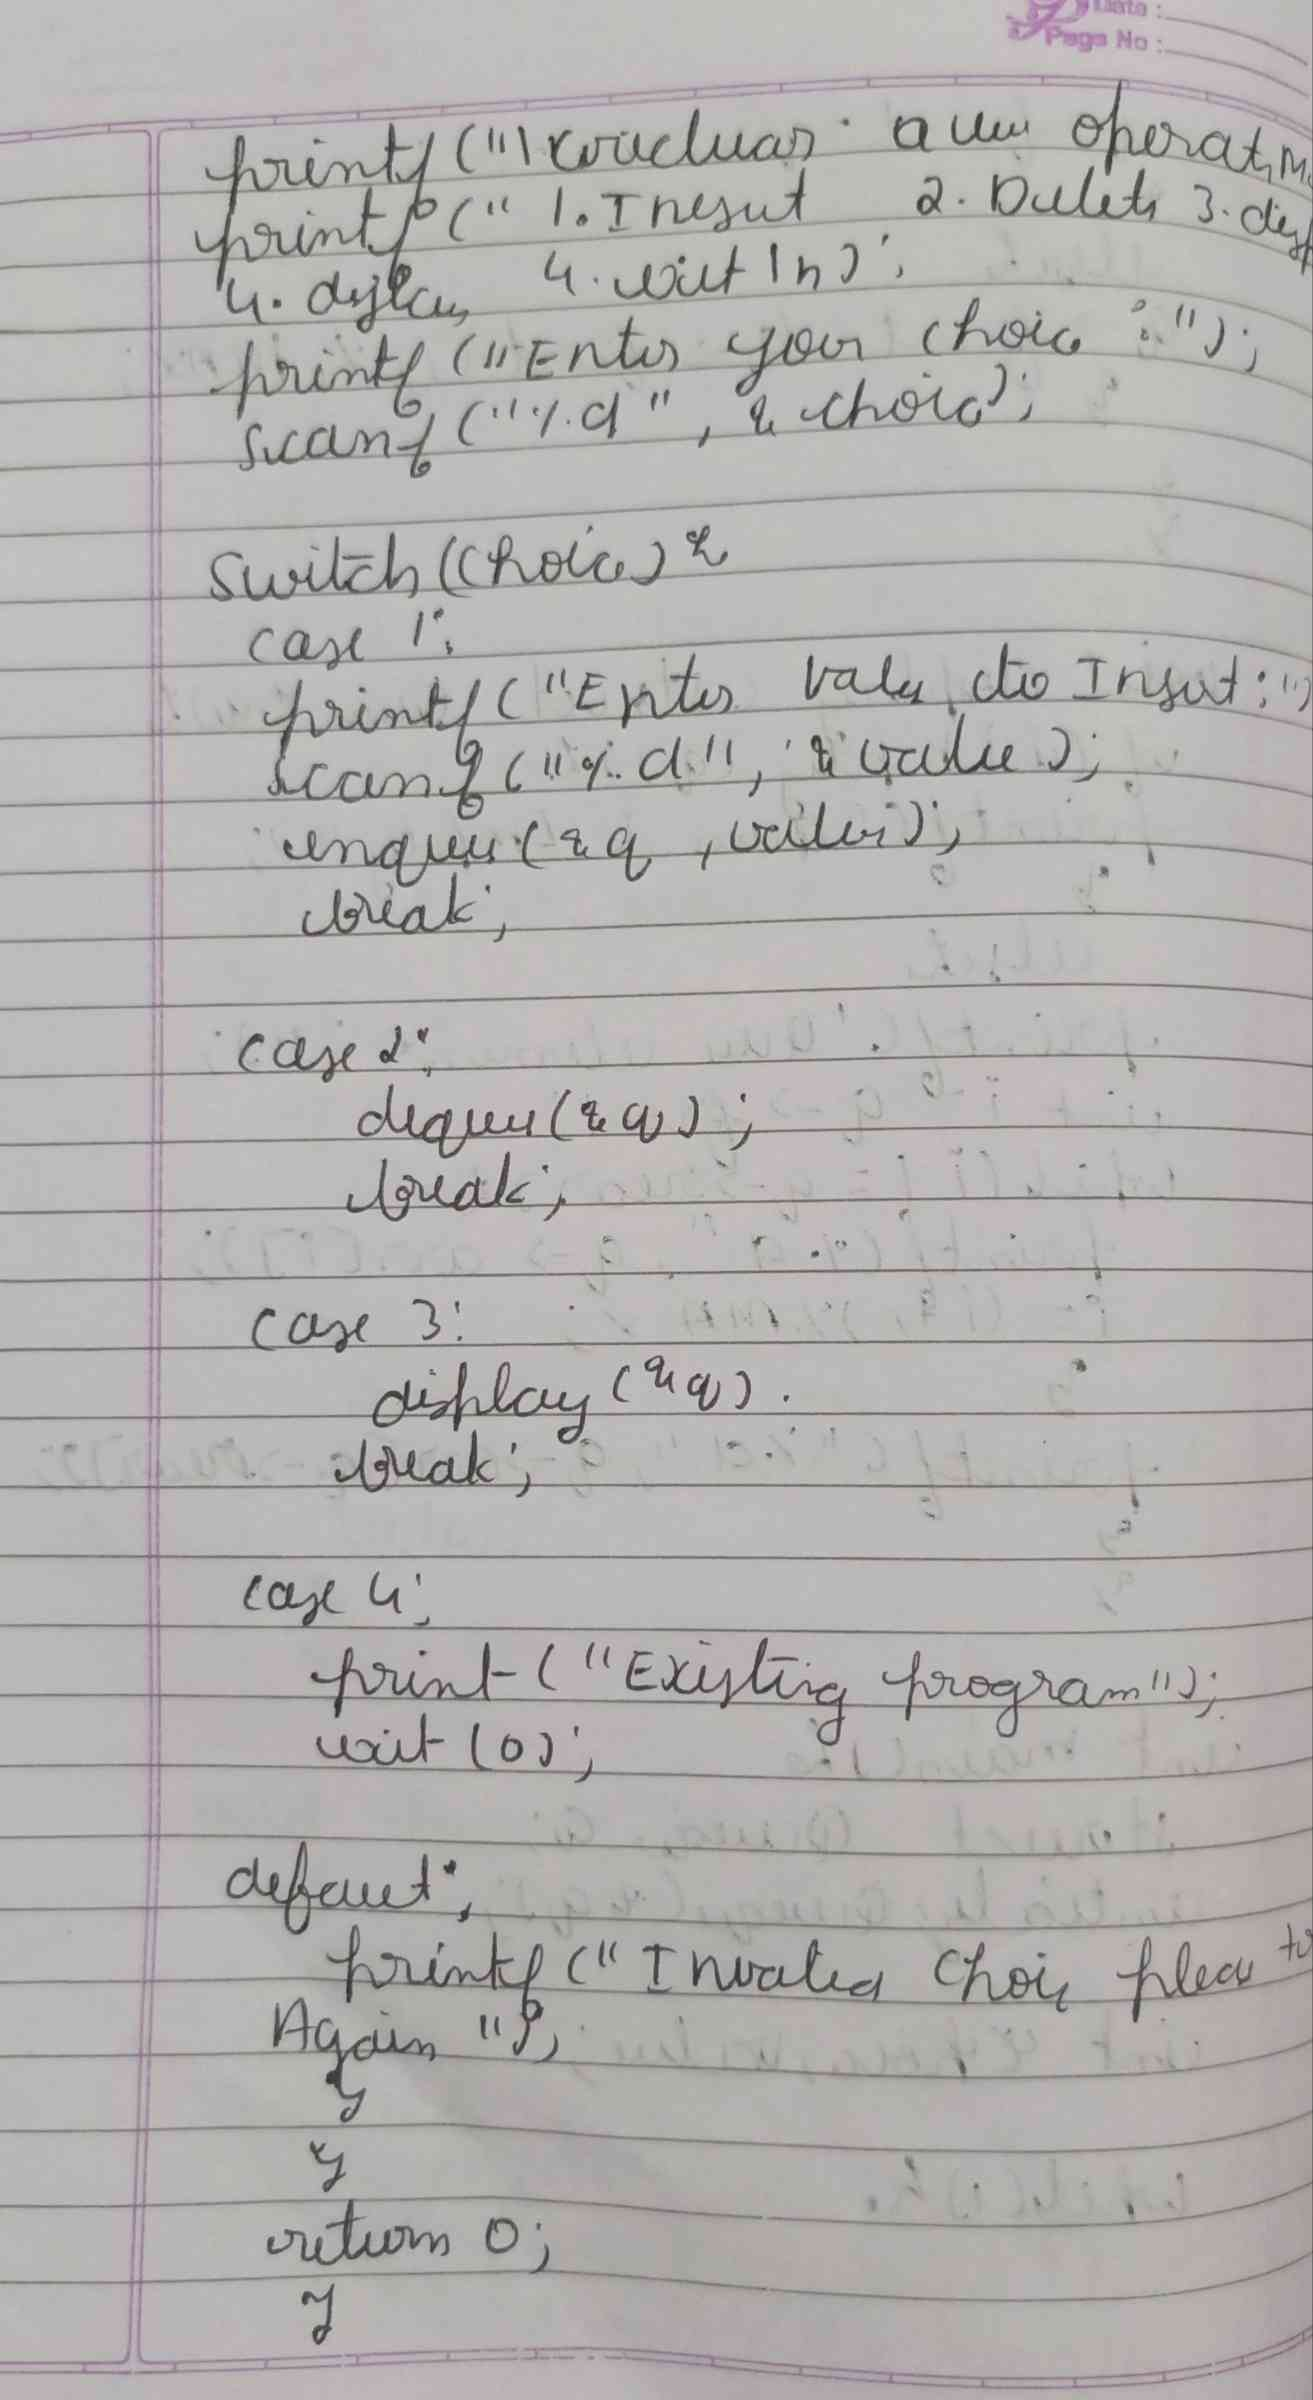 Date :
Page No :
printf ("\ncircular queue operation
printf (" 1. Insert 2. Delete 3. disp
4. display 4. exit \n) ;
printf ("Enter your choice : ");
scanf ("%d", & choice);
switch (choice) {
case 1:
printf ("Enter value to Insert : ")
scanf ("%d", & value );
enqueue (&q , value);
break;
case 2:
dequeue (&q) ;
break;
case 3:
display (&q) .
break;
case 4:
print ("Existing program");
exit (0);
default:
printf (" Invalid Choice please
Again ");
}
}
return 0;
}